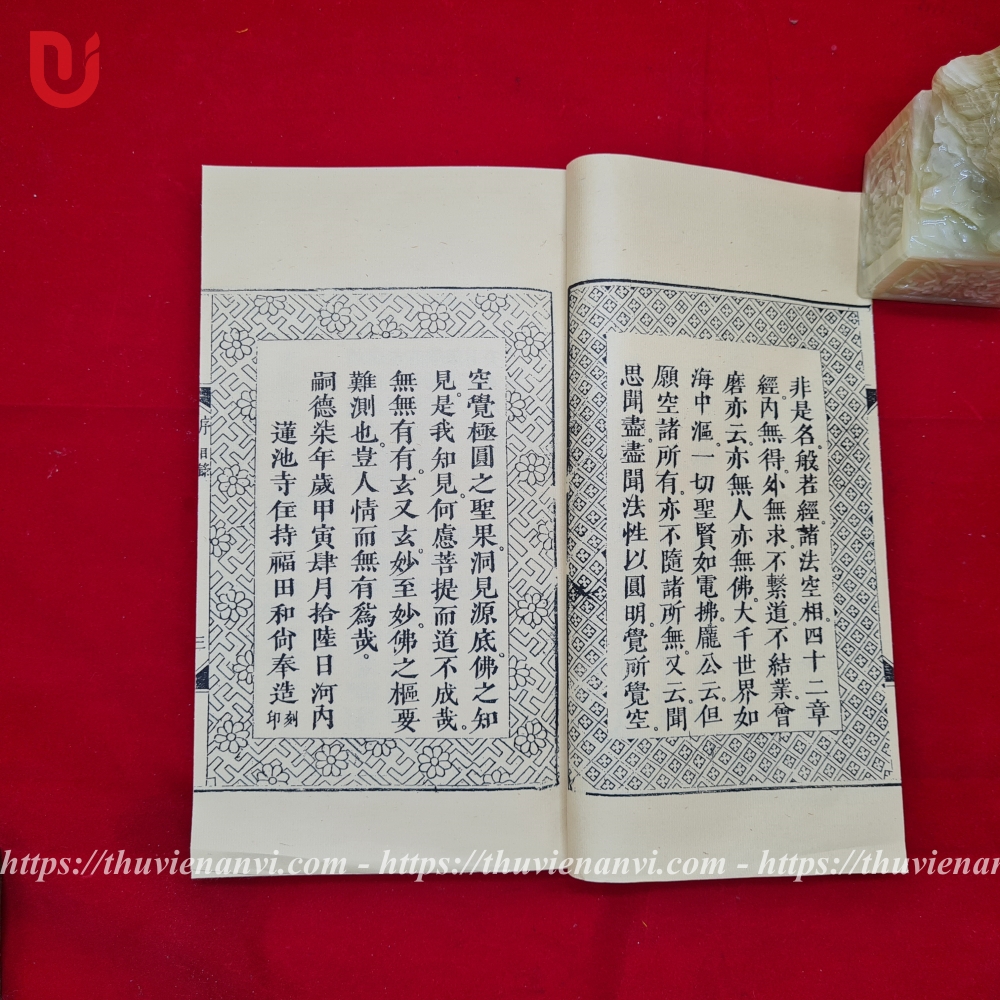 非是名。般若經。諸法空相。四十二章
經。內無得。外無求。不繫道。不結業。
磨亦云。亦無人亦無佛。大千世界如
海中漚。一切聖賢如電拂。龐公云。但
願空諸所有。亦不隨諸所無。又云。聞
思聞盡。盡聞法性以圓明。覺所覺空。
空覺極圓之聖果。洞見源底。佛之知
見。是我知見。何慮菩提而道不成哉。
無無有有。玄又玄。妙至妙。佛之樞要
難測也。豈人情而無有爲哉。
嗣德柒年歲甲寅肆月拾陸日河內
蓮池寺住持福田和尙奉造
刻印
序
三
https://thuvienanvi.com - https://thuvienanvi.com - https://thuvienan